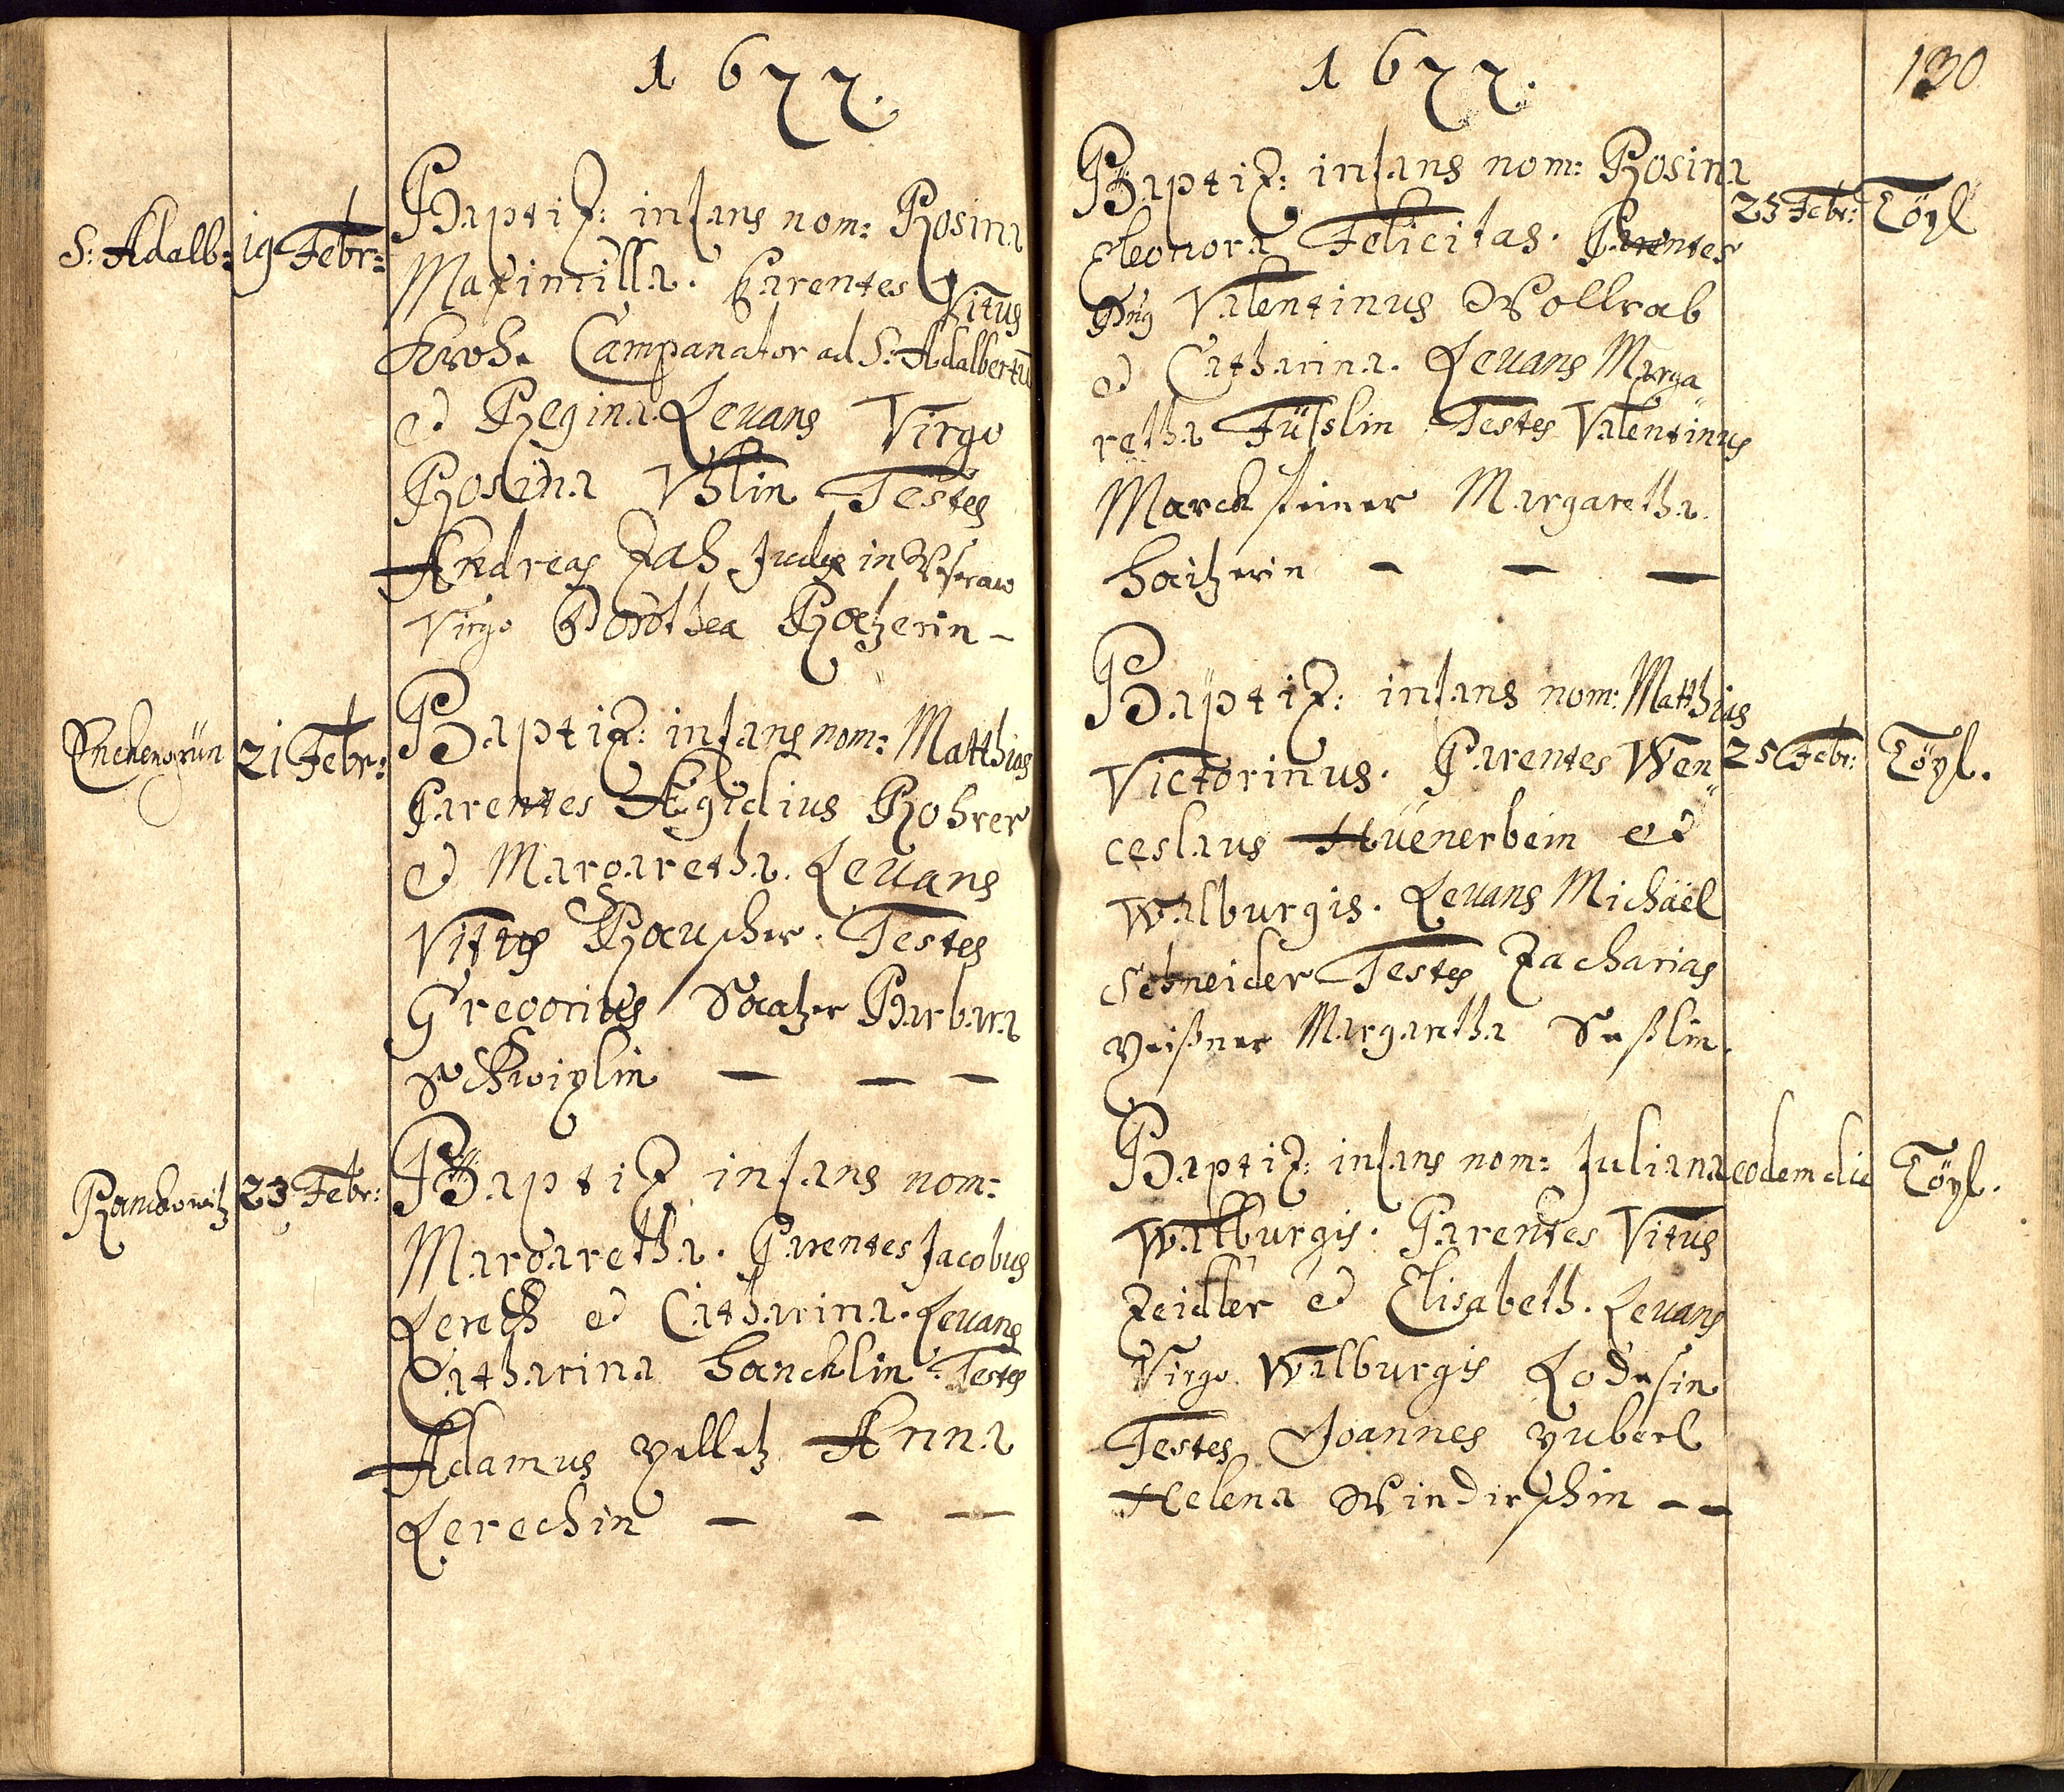 1677.
S: Adalb: 19 Febr:
Baptiz: infans nom: Rosina
Maximilla. Parentes Vitus
Kroh. Campanator ad S: Adalbertũ
et Regina. Levans Virgo
Rosina Vhlin Testes
Andreas Zah Judex in
Virgo Dorothea Ratzerin -
21 Febr:
Baptiz: infans nom: Matthias
Parentes Ægidius Rohrer
et Margaretha. Levans
Vitus Rauscher. Testes
Gregorius Satzer Barbara
— — —
23 Febr:
Baptiz infans nom:
Margaretha. Parentes Jacobus
Lerech et Catharina. Levans
Catharina Hancklin. Testes
Adamus Anna
Lerechin — — —
1677.
130
Baptiz: infans nom: Rosina
23 Febr: Töyl
Eleonora Felicitas. Parentes
Dñs Valentinus Wollrab
et Catharina. Levans Marga
retha Füsslin Testes Valentinus
Marcksteiner Margaretha.
Haitzerin — — —
Baptiz: infans nom: Matthias
25 Febr: Töyl.
Victorinus. Parentes Wen"
ceslaus Huenerbein et
Walburgis. Levans Michäel
Schneider Testes Zacharias
Margaretha
Baptiz: infans nom: Juliana
eodem die Töyl.
Walburgis. Parentes Vitus
Zeidler et Elisabeth. Levans
Virgo Walburgis Lodesin
Testes Joannes
Helena Windirschin — —